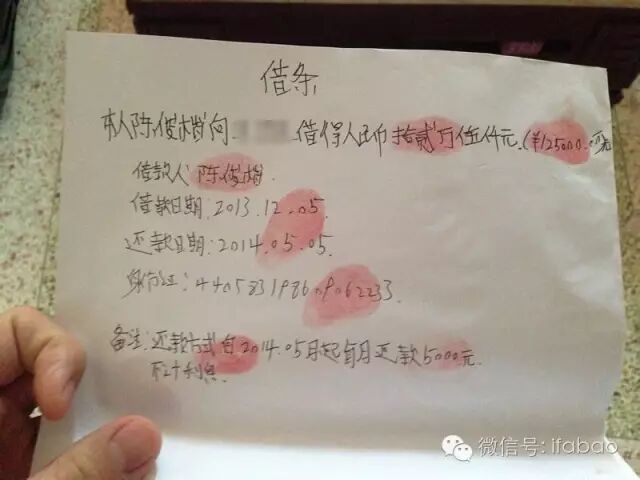 借条
本人陈俊楷向 借得人民币拾贰万伍仟元.(¥125000.00元
借款人 陈俊楷.
借款日期:2013.12.05.
还款日期:2014.05.05.
身份证:440583198609062233.
备注:还款方式自2014.05月起每月还款5000元.
不计利息.
微信号: ifabao